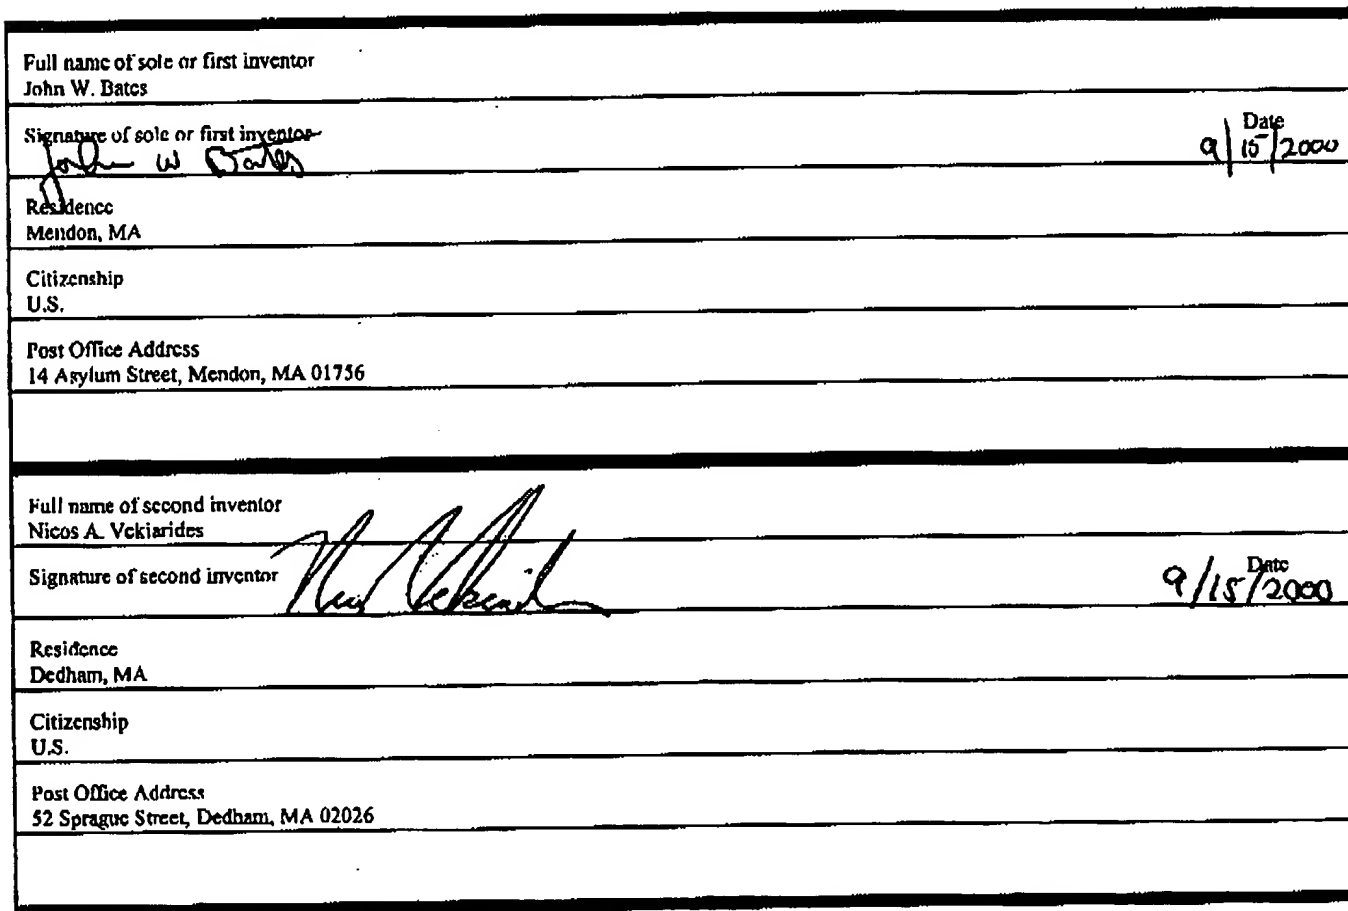 Full name of sole or first inventor
John W. Bates
Signature of sole or first inventor
Date
John W Bates
9/15/2000
Residence
Mendon, MA
Citizenship
U.S.
Post Office Address
14 Asylum Street, Mendon, MA 01756
Full name of second inventor
Nicos A. Vekiarides
Signature of second inventor
Date
9/15/2000
Residence
Dedham, MA
Citizenship
U.S.
Post Office Address
52 Sprague Street, Dedham, MA 02026